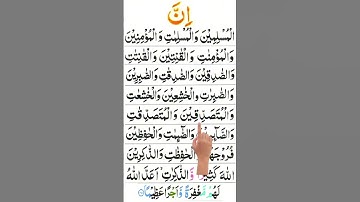 اِنَّ
الْمُسْلِمِيْنَ وَالْمُسْلِمٰتِ وَالْمُؤْمِنِيْنَ
وَالْمُؤْمِنٰتِ وَالْقٰنِتِيْنَ وَالْقٰنِتٰتِ
وَالصّٰدِقِيْنَ وَالصّٰدِقٰتِ وَالصّٰبِرِيْنَ
وَالصّٰبِرٰتِ وَالْخٰشِعِيْنَ وَالْخٰشِعٰتِ
وَالْمُتَصَدِّقِيْنَ وَالْمُتَصَدِّقٰتِ
وَالصَّآىِٕمِيْنَ وَالصّٰٓىِٕمٰتِ وَالْحٰفِظِيْنَ
فُرُوْجَهُمْ وَالْحٰفِظٰتِ وَالذّٰكِرِيْنَ
اللّٰهَ كَثِيْرًا وَّالذّٰكِرٰتِ اَعَدَّ اللّٰهُ
لَهُمْ مَّغْفِرَةً وَّاَجْرًا عَظِيْمًا